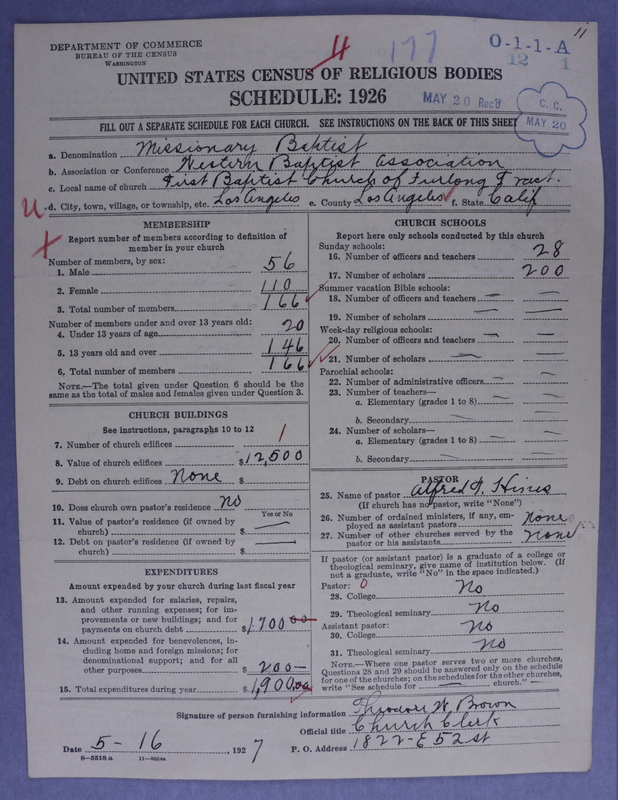 11
DEPARTMENT OF COMMERCE
BUREAU OF THE CENSUS
WASHINGTON
4
177
O-1-1-A
12 1
UNITED STATES CENSUS OF RELIGIOUS BODIES
SCHEDULE: 1926
MAY 20 Rec'd
C. C.
MAY 20
FILL OUT A SEPARATE SCHEDULE FOR EACH CHURCH. SEE INSTRUCTIONS ON THE BACK OF THIS SHEET
a. Denomination Missionary Baptist
b. Association or Conference Western Baptist Association
c. Local name of church First Baptist Church of Furlong Tract.
U d. City, town, village, or township, etc. Los Angeles e. County Los Angeles f. State Calif
MEMBERSHIP
X Report number of members according to definition of
member in your church
Number of members, by sex:
1. Male 56
2. Female 110
3. Total number of members 166
Number of members under and over 13 years old:
4. Under 13 years of age 20
5. 13 years old and over 146
6. Total number of members 166
NOTE.—The total given under Question 6 should be the
same as the total of males and females given under Question 3.
CHURCH BUILDINGS
See instructions, paragraphs 10 to 12
7. Number of church edifices 1
8. Value of church edifices $12,500
9. Debt on church edifices None
10. Does church own pastor's residence No
Yes or No
11. Value of pastor's residence (if owned by
church) $ —
12. Debt on pastor's residence (if owned by
church) $ —
EXPENDITURES
Amount expended by your church during last fiscal year
13. Amount expended for salaries, repairs,
and other running expenses; for im-
provements or new buildings; and for
payments on church debt $1,700 00
14. Amount expended for benevolences, in-
cluding home and foreign missions; for
denominational support; and for all
other purposes $200—
15. Total expenditures during year $1,900.00
CHURCH SCHOOLS
Report here only schools conducted by this church
Sunday schools:
16. Number of officers and teachers 28
17. Number of scholars 200
Summer vacation Bible schools:
18. Number of officers and teachers — —
19. Number of scholars — —
Week-day religious schools:
20. Number of officers and teachers — —
21. Number of scholars — —
Parochial schools:
22. Number of administrative officers — —
23. Number of teachers—
a. Elementary (grades 1 to 8) — —
b. Secondary — —
24. Number of scholars—
a. Elementary (grades 1 to 8) — —
b. Secondary — —
PASTOR
25. Name of pastor Alfred F. Hines
(If church has no pastor, write "None")
26. Number of ordained ministers, if any, em-
ployed as assistant pastors none
27. Number of other churches served by the
pastor or his assistants none
If pastor (or assistant pastor) is a graduate of a college or
theological seminary, give name of institution below. (If
not a graduate, write "No" in the space indicated.)
Pastor: 0
28. College No
29. Theological seminary No
Assistant pastor:
30. College No
31. Theological seminary No
NOTE.—Where one pastor serves two or more churches,
Questions 28 and 29 should be answered only on the schedule
for one of the churches; on the schedules for the other churches,
write "See schedule for — church."
Signature of person furnishing information Theodore W. Brown
Official title Church Clerk
Date 5-16, 1927 P. O. Address 1822-E 52 st
8—5518 a 11—9054a